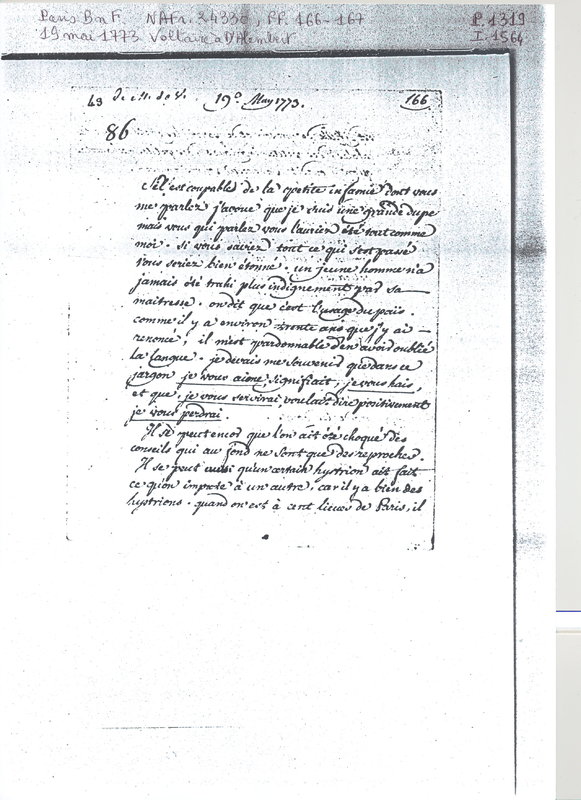 Paris BnF. NAFr. 24330, ff. 166-167
P. 1319
19 mai 1773 Voltaire a D'Alembert
I. 1564
43 de M. de V. 19e May 1773. 166
86
S'il est coupable de la petite infamie dont vous
me parlez j'avoue que je suis une grande dupe
mais vous qui parlez vous l'auriez été tout comme
moi. si vous saviez tout ce qui s'est passé
vous seriez bien étonné. un jeune homme n'a
jamais été trahi plus indignement par sa
maitresse. on dit que c'est l'usage du païs.
comme il y a environ trente ans que j'y ai
renoncé, il m'est pardonnable d'en avoir oublié
la langue. je devais me souvenir que dans ce
jargon je vous aime signifiait, je vous hais,
et que, je vous servirai, voulait dire positivement
je vous perdrai.
Il se peut encor que l'on ait été choqué des
conseils qui au fond ne sont que des reproches.
Il se peut aussi qu'un certain hystrion ait fait
ce qu'on impute à un autre, car il y a bien des
hystrions. quand on est à cent lieues de Paris, il